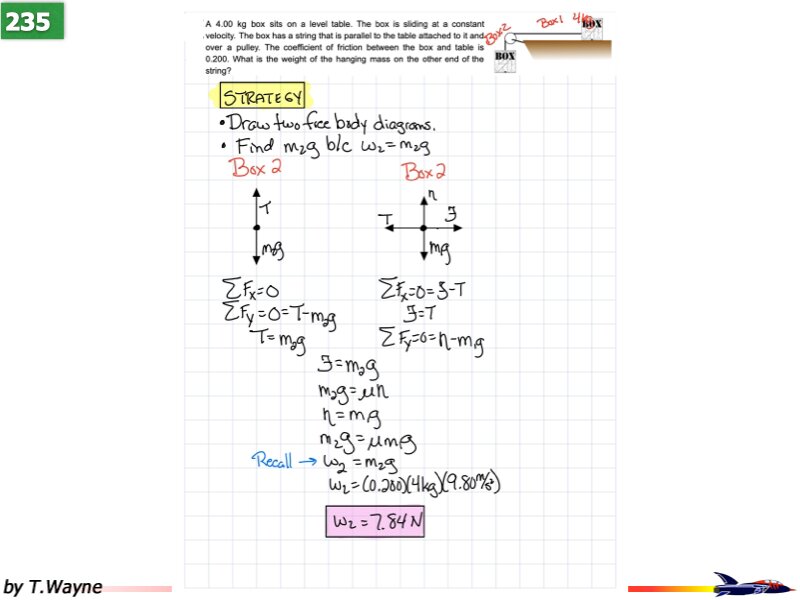 235
A 4.00 kg box sits on a level table. The box is sliding at a constant
velocity. The box has a string that is parallel to the table attached to it and
over a pulley. The coefficient of friction between the box and table is
0.200. What is the weight of the hanging mass on the other end of the
string?
Box 2
Box 1 4kg
BOX
BOX
STRATEGY
• Draw two free body diagrams.
• Find m₂g b/c w₂=m₂g
Box 2 Box 2
T
m₂g
n
T
F
m₁g
ΣFₓ=0 ΣFₓ=0=F-T
ΣFy=0=T-m₂g F=T
T=m₂g ΣFy=0=n-m₁g
F=m₂g
m₂g=μn
n=m₁g
m₂g=μm₁g
Recall → w₂=m₂g
w₂=(0.200)(4kg)(9.80m/s²)
w₂=7.84N
by T.Wayne